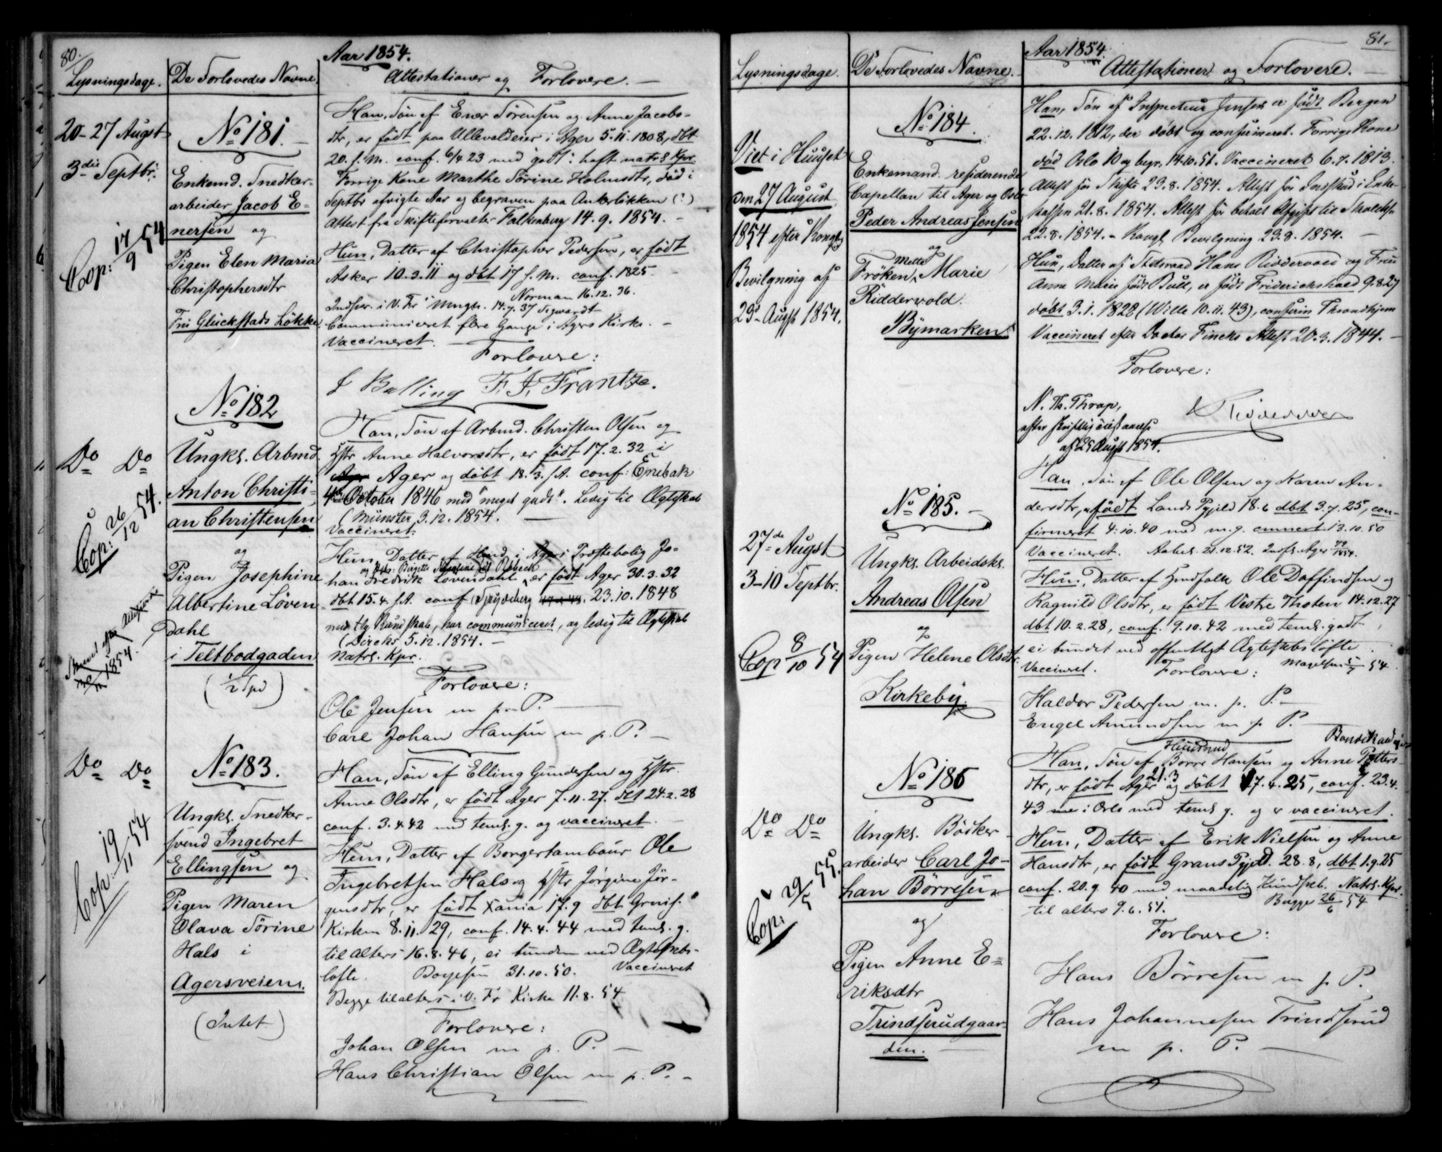 80.
Aar 1854.
Lysningsdage.
De Forlovedes Navne.
Attestationer og Forlovere.
20-27 August
3die Septbr.
Cop: 17/9 54
No 181.
Enkemd. Snedker-
arbeider Jacob E-
nersen og
Pigen Elen Maria
Christophersdtr
Fru Glückstads Løkke
Han, Søn af Ener Sørensen og Anne Jacobs-
dtr, er født paa Ullevaldseier i Ager 5.11.1808, dbt
20. s.M. conf. 6/4 23 med "godt";
Forrige Kone Marthe Sørine Holmsdtr, død i
Septbr afvigte Aar og begraven paa Ankerløkken (:)
Attest fra Skifteforvalter Falkenberg 14.9.1854.
Hun, Datter af Christopher Pedersen, er født
Asker 10.3.11 og dbt 17 s.M. conf. 1825
Norman 16.12.36.
Communiceret flere Gange i Agers Kirke.
Vaccineret.
Forlovere:
J Balling F. J. Frantze.
Do Do
Cop: 26/12 54.
No 182
Ungks. Arbmd.
Anton Christi-
an Christensen
og
Pigen Josephine
Albertine Løven-
dahl
i Teltbodgaden
(1/2 Spd)
Han, Søn af Arbmd. Christen Olsen og
Hstr Anne Halvorsdtr, er født 17.2.32 i
Ager og døbt 18.3. s.A. conf: Enebak
4de October 1846 med "meget godt". Ledig til Ægteskab
(Münster 3.12.1854.
Vaccineret.
Hun, Datter af
han Fredrik Løvendahl, er født Ager 30.3.32
dbt 15.4. s.A. conf. Spydeberg 23.10.1848
med har communiceret, og ledig til Ægteskab
5.12.1854.
Natrl. Kpr.
Forlovere:
Ole Jensen m. p. P.
Carl Johan Hansen m. p. P.
Do Do
Cop: 19/11 54
No 183.
Ungks. Snedker-
svend Ingebret
Ellingsen og
Pigen Maren
Olava Sørine
Hals i
Agersveien.
(Intet)
Han, Søn af Elling Gundersen og Hstr.
Anne Olsdtr, er født Ager 7.11.27. dbt 24.2.28
conf. 3.4.42 med temlg. g. og vaccineret.
Hun, Datter af Borgertambour Ole
Ingebretsen Hals og Hstr Jørgine Jør-
gensdtr, er født Xania 17.9 dbt Grnis:
Kirken 8.11.29, conf. 14.4.44 med temlg. g.
til alters 16.8.46, ei bunden med Ægteskbs-
løfte. Borgesen 31.10.50. Vaccineret
Begge til alters i V. Fr Kirke 11.8.54
Forlovere:
Johan Olsen m. p. P.
Hans Christian Olsen m. p. P.
81.
Aar 1854
Lysningsdage.
De Forlovedes Navne.
Attestationer og Forlovere.
Viet i Huuset
den 27 August
1854 efter Kongl.
Bevilgning af
23- August 1854.
No 184.
Enkemand. residerende
Capellan til Ager og Oslo
Peder Andreas Jensen
og
Frøken Marie
Ridderwold.
Bymarken.
Han, Søn af Inspecteur Jensen er født Bergen
22.12.1812, der døbt og confirmeret. Forrige Kone
død Oslo 10 og begr. 14.10.51. Vaccineret 6.7.1813.
Attest for Skifte 23.8.1854. Attest for Indskud i Enke-
kassen 21.8.1854. Attest for betalt Afgift
22.8.1854. - Kongl. Bevilgning 23.8.1854.
Hun, Datter af Hans Ridderwold og Fru
Anne Marie født Bull, er født Friderichshald 9.8.27
døbt 3.1.1828 (Wille 10.11.43), confirm Throndhjem
Vaccineret efter Doctor Fincks Attest 20.3.1844.
Forlovere:
N. Th. Thrap,
efter skriftlig
af 25 August 1854.
H Ridderwold
27de August
3-10 Septbr.
Cop 8/10 54
No 185.
Ungks. Arbeidsks.
Andreas Olsen
og
Pigen Helene Olsdtr
Kirkeby
Han, Søn af Ole Olsen og Karen An-
dersdtr, er født Lands Pgjeld 18.6 dbt 3.7.25, con-
firmeret 4.10.40 med m.g. 13.10.50
Vaccineret.
Hun, Datter af Huusfolk Ole Daffindsen og
Ragnild Olsdtr, er født Vestre Thoten 14.12.27
dbt 10.2.28, conf. 9.10.42 med temlg. godt,
ei bundet med offentligt Ægteskabsløfte.
Vaccineret.
Forlovere:
Haldor Pedersen m. p. P.
Engel Amundsen m. p. P.
Do Do
Cop: 29/5 55.
No 186
Ungks. Bødker-
arbeider Carl Jo-
han Børresen
og
Pigen Anne E-
riksdtr
Trindserudgaar-
den.
Han, Søn af Huusmd Børre Hansen og Anne Petters-
dtr, er født Ager 21.3 og døbt 17.4.25, conf. 23.4.
43 i Oslo med temlg. g. og er vaccineret.
Hun, Datter af Erik Nielsen og Anne
Hansdtr, er født Grans Pgjld. 28.8, dbt 1.9.25
conf. 20.9.40 med maadelig Kundskb. Natrl. Kpr.
til alters 9.6.51. Bugge 26/6 54
Forlovere:
Hans Børresen m. p. P.
Hans Johannesen Trindserud
m. p. P.